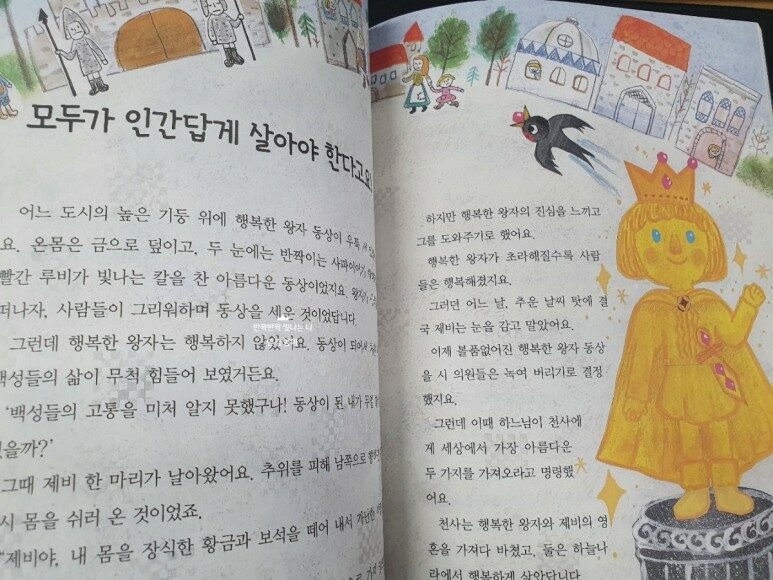 모두가 인간답게 살아야 한다고요
어느 도시의 높은 기둥 위에 행복한 왕자 동상이 우뚝
요. 온몸은 금으로 덮이고, 두 눈에는 반짝이는 사파이어가,
빨간 루비가 빛나는 칼을 찬 아름다운 동상이었지요. 왕자가
떠나자, 사람들이 그리워하며 동상을 세운 것이었답니다.
그런데 행복한 왕자는 행복하지 않았어요. 동상이 되어서
백성들의 삶이 무척 힘들어 보였거든요.
‘백성들의 고통을 미처 알지 못했구나! 동상이 된 내가 무얼
있을까?’
그때 제비 한 마리가 날아왔어요. 추위를 피해 남쪽으로
시 몸을 쉬러 온 것이었죠.
“제비야, 내 몸을 장식한 황금과 보석을 떼어 내서 가난한
하지만 행복한 왕자의 진심을 느끼고
그를 도와주기로 했어요.
행복한 왕자가 초라해질수록 사람
들은 행복해졌지요.
그러던 어느 날, 추운 날씨 탓에 결
국 제비는 눈을 감고 말았어요.
이제 볼품없어진 행복한 왕자 동상
을 시 의원들은 녹여 버리기로 결정
했지요.
그런데 이때 하느님이 천사에
게 세상에서 가장 아름다운
두 가지를 가져오라고 명령했
어요.
천사는 행복한 왕자와 제비의 영
혼을 가져다 바쳤고, 둘은 하늘나
라에서 행복하게 살았답니다